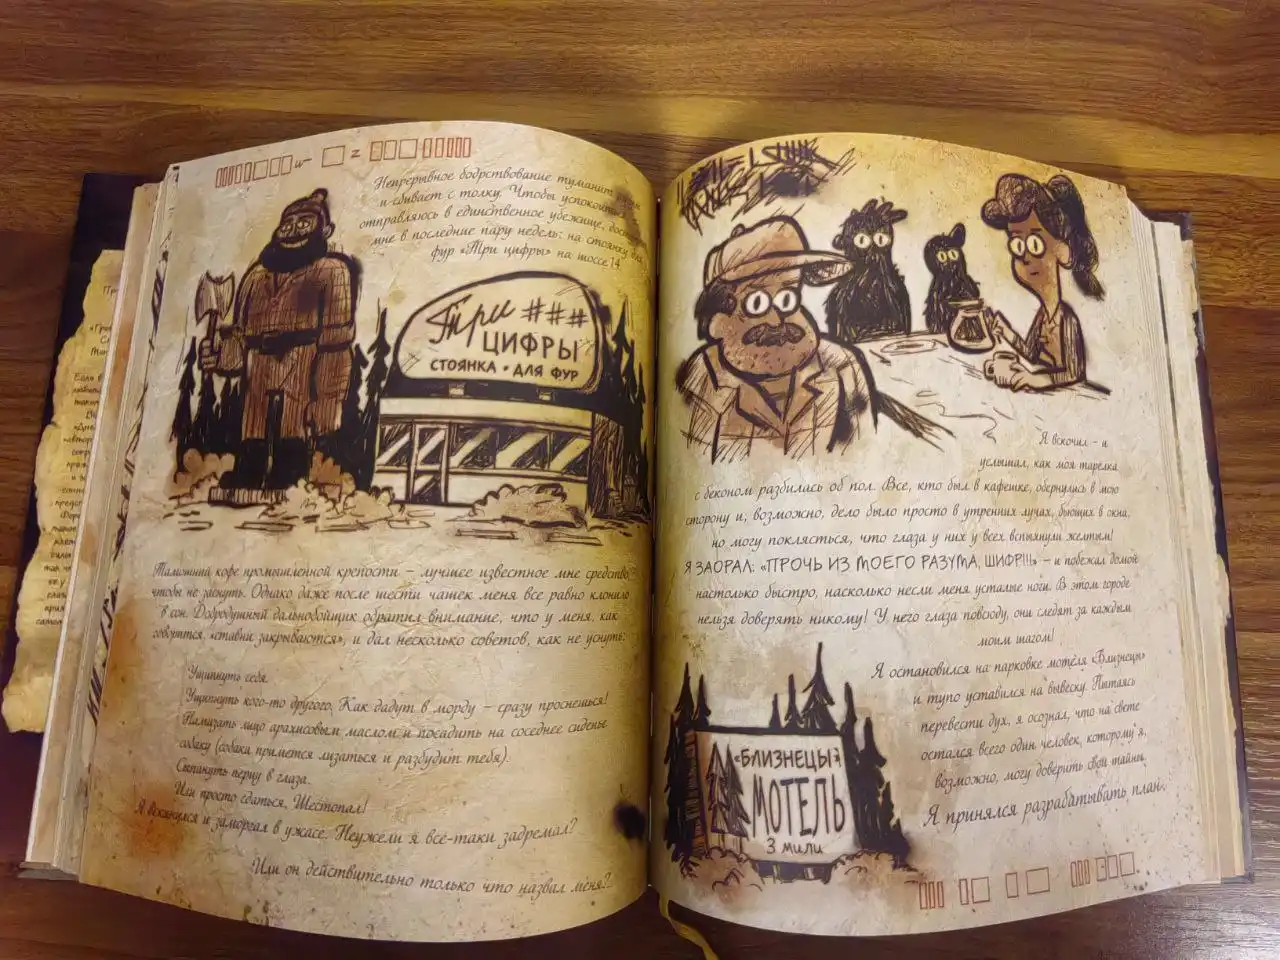 Непрерывное бодрствование туманит
и сбивает с толку. Чтобы
отправляюсь в единственное убежище,
мне в последние пару недель: на стоянку для
фур «Три цифры» на шоссе 14.
Три ###
ЦИФРЫ
СТОЯНКА • ДЛЯ ФУР
Тамошний кофе промышленной крепости – лучшее известное мне средство,
чтобы не заснуть. Однако даже после шести чашек меня все равно клонило
в сон. Добродушный дальнобойщик обратил внимание, что у меня, как
говорится, «ставни закрываются», и дал несколько советов, как не уснуть:
Ущипнуть себя.
Ущипнуть кого-то другого. Как дадут в морду – сразу проснешься!
Намазать лицо арахисовым маслом и посадить на соседнее сиденье
собаку (собака примется лизаться и разбудит тебя).
Сыпануть перцу в глаза.
Или просто сдаться, Шестопал!
Я вскинулся и заморгал в ужасе. Неужели я всё-таки задремал?
Или он действительно только что назвал меня?..
Я вскочил – и
услышал, как моя тарелка
с беконом разбилась об пол. Все, кто был в кафешке, обернулись в мою
сторону и, возможно, дело было просто в утренних лучах, бьющих в окна,
но могу поклясться, что глаза у них у всех вспыхнули желтым!
Я ЗАОРАЛ: «ПРОЧЬ ИЗ МОЕГО РАЗУМА, ШИФР!!!» – и побежал домой
настолько быстро, насколько несли меня усталые ноги. В этом городе
нельзя доверять никому! У него глаза повсюду, они следят за каждым
моим шагом!
Я остановился на парковке мотеля «Близнецы»
и тупо уставился на вывеску. Пытаясь
перевести дух, я осознал, что на свете
остался всего один человек, которому я,
возможно, могу доверить свои тайны.
Я принялся разрабатывать план.
«БЛИЗНЕЦЫ»
МОТЕЛЬ
3 мили